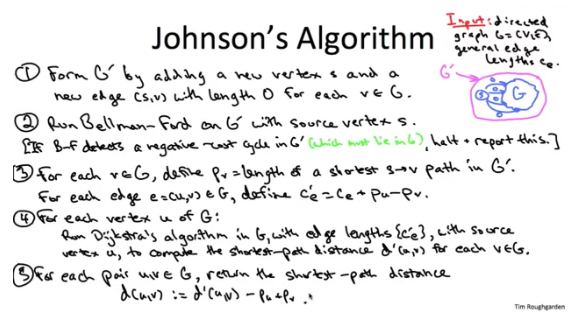 Johnson's Algorithm
Input: directed
graph G=(V,E),
general edge
lengths ce.
G'
s
G
① Form G' by adding a new vertex s and a
new edge (s,v) with length 0 for each v∈G.
② Run Bellman-Ford on G' with source vertex s.
[If B-F detects a negative-cost cycle in G' (which must lie in G), halt + report this.]
③ For each v∈G, define pv = length of a shortest s→v path in G'.
For each edge e=(u,v)∈G, define c'e = ce + pu - pv.
④ For each vertex u of G:
Run Dijkstra's algorithm in G, with edge lengths {c'e}, with source
vertex u, to compute the shortest-path distance d'(u,v) for each v∈G.
⑤ For each pair u,v∈G, return the shortest-path distance
d(u,v) := d'(u,v) - pu + pv.
Tim Roughgarden